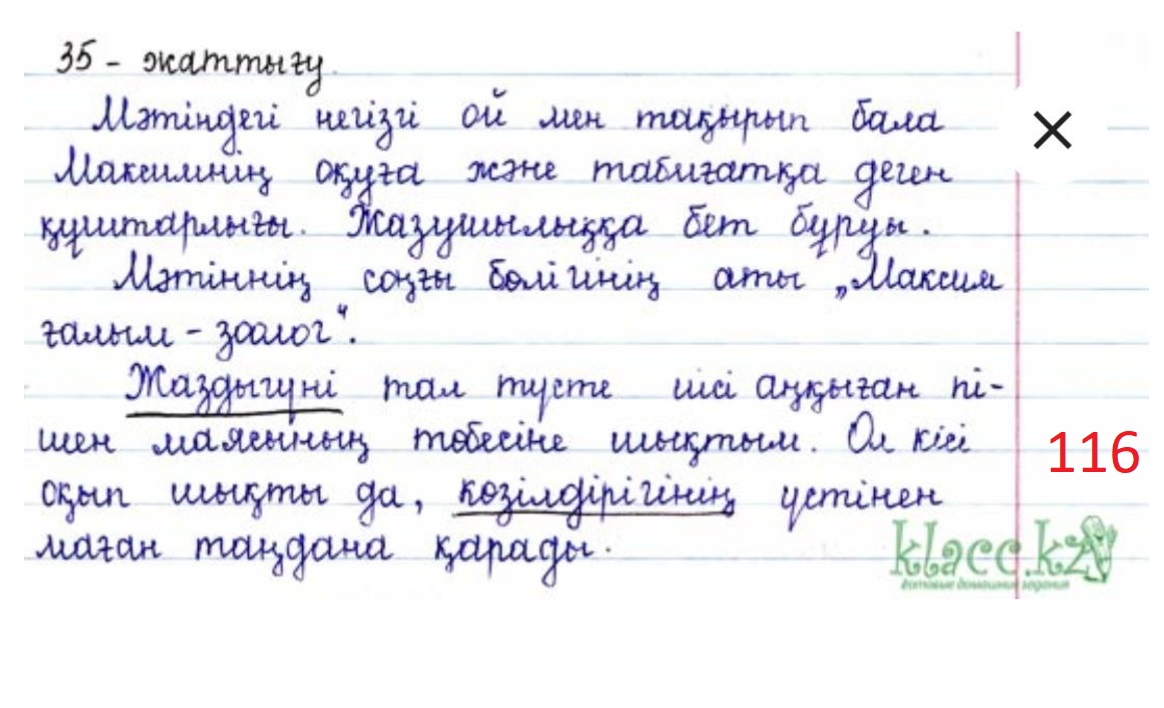 35 - жаттығу.
Мәтіндегі негізгі ой мен тақырып бала
Максимнің оқуға және табиғатқа деген
құштарлығы. Жазушылыққа бет бұруы.
Мәтіннің соңғы бөлігінің аты „Максим
ғалым - зоолог“.
Жаздыгүні тал түсте иісі аңқыған пі-
шен маясының төбесіне шықтым. Ол кісі
оқып шықты да, көзілдірігінің үстінен
маған таңдана қарады.
116
klacc.kz
готовые домашние задания